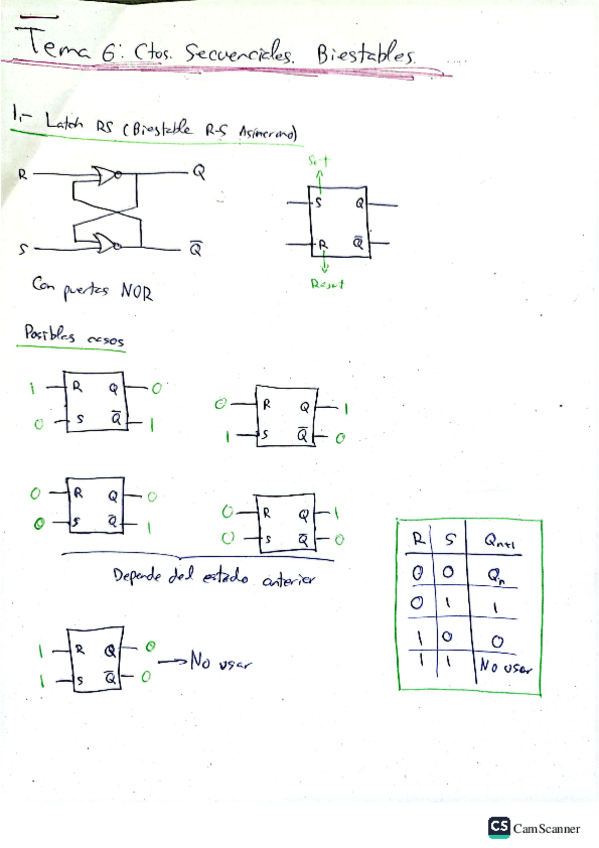 Tema 6: Ctos. Secuenciales. Biestables.
1.- Latch RS (Biestable R-S Asíncrono)
R Q
S Q̅
Con puertas NOR
Set
S Q
R Q̅
Reset
Posibles casos
1 R Q 0
0 S Q̅ 1
0 R Q 1
1 S Q̅ 0
0 R Q 0
0 S Q̅ 1
0 R Q 1
0 S Q̅ 0
Depende del estado anterior
1 R Q 0
1 S Q̅ 0
→ No usar
R S Qn+1
0 0 Qn
0 1 1
1 0 0
1 1 No usar
CS CamScanner